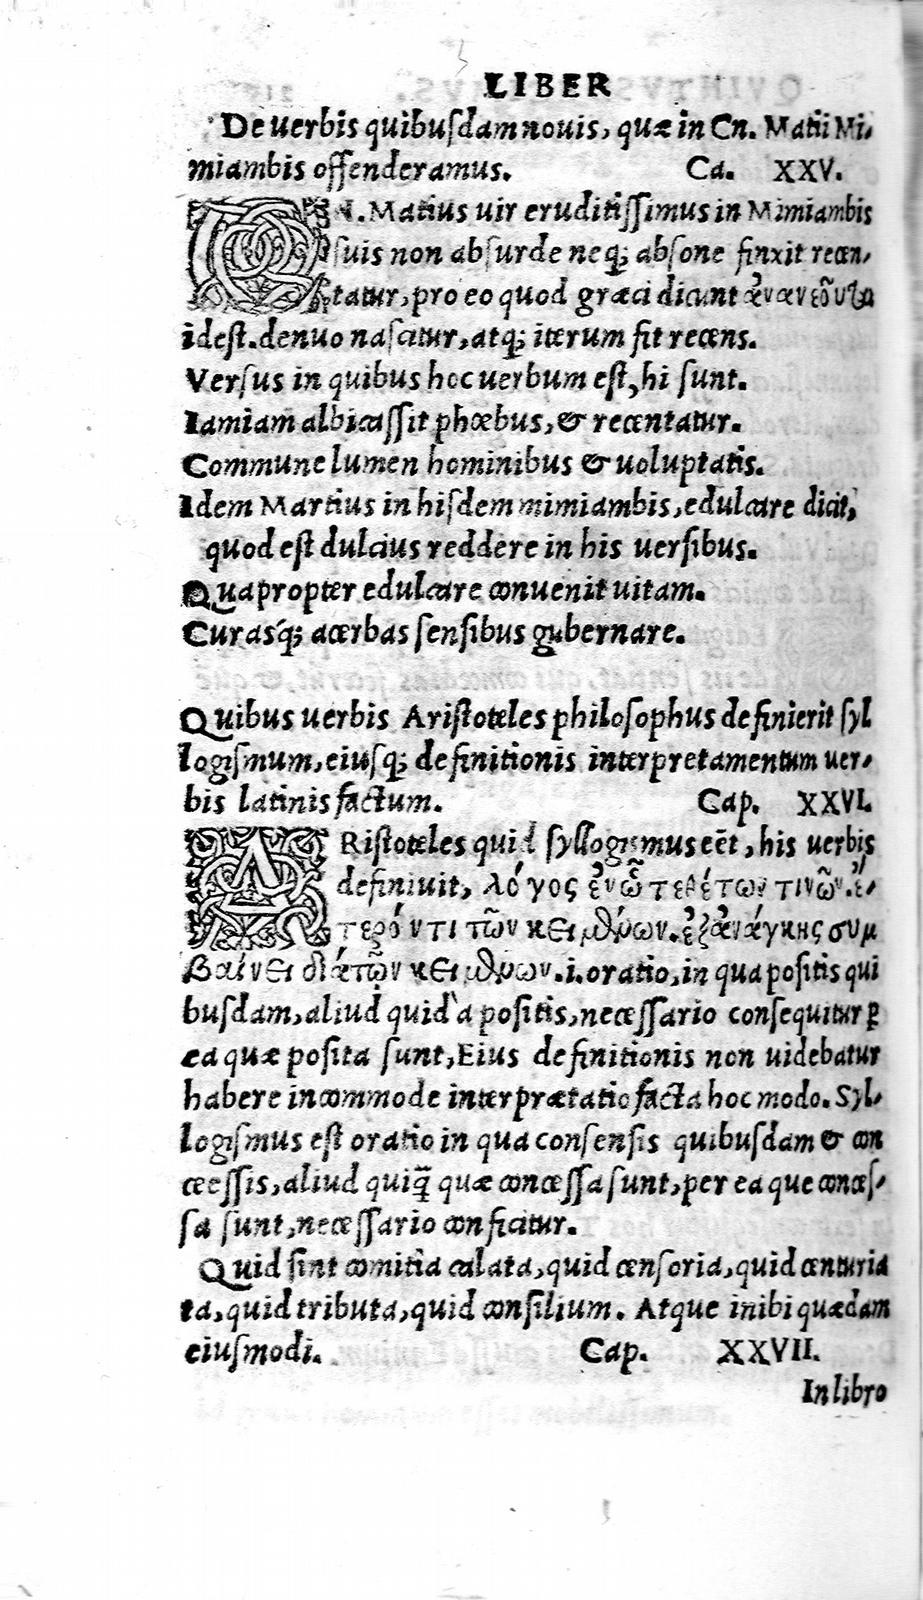 LIBER
De uerbis quibusdam nouis, quæ in Cn. Matii Mi,
miambis offenderamus. Ca. XXV.
CN. Matius uir eruditissimus in Mimiambis
suis non absurde neq; absone finxit recen,
tatur, pro eo quod græci dicunt ἀνανεοῦται
idest. denuo nascitur, atq; iterum fit recens.
Versus in quibus hoc uerbum est, hi sunt.
Iamiam albicassit phœbus, & recentatur.
Commune lumen hominibus & uoluptatis.
Idem Martius in hisdem mimiambis, edulcare dicit,
quod est dulcius reddere in his uersibus.
Quapropter edulcare conuenit uitam.
Curasq; acerbas sensibus gubernare.
Quibus uerbis Aristoteles philosophus definierit syl
logismum, eiusq; definitionis interpretamentum uer,
bis latinis factum. Cap. XXVI.
ARistoteles quid syllogismus eēt, his uerbis
definiuit, λόγος ἐν ᾧ τεθέτων τινῶν. ἕ,
τερόν τι τῶν κειμένων. ἐξ ἀνάγκης συμ
βαίνει διὰ τῶν κειμένων. i. oratio, in qua positis qui
busdam, aliud quid à positis, necessario consequitur ꝑ
ea quæ posita sunt, Eius definitionis non uidebatur
habere incommode interprætatio facta hoc modo. Syl,
logismus est oratio in qua consensis quibusdam & con
ceessis, aliud quiq̃ quæ concessa sunt, per ea que conces,
sa sunt, necessario conficitur.
Quid sint comitia calata, quid censoria, quid centuria
ta, quid tributa, quid consilium. Atque inibi quædam
eiusmodi. Cap. XXVII.
In libro